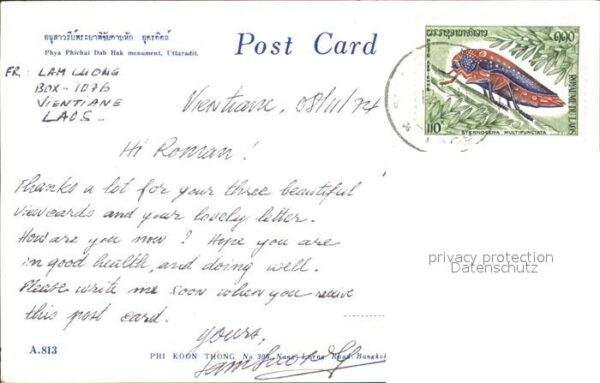 อนุสาวรีย์พระยาพิชัยดาบหัก อุตรดิตถ์
Phya Phichai Dab Hak monument, Uttaradit.
Post Card
FR: LAM LUONG
BOX - 1076
VIENTIANE
LAOS -
Vientiane, 08/11/74
Hi Roman!
Thanks a lot for your three beautiful
viewcards and your lovely letter.
How are you now? Hope you are
in good health, and doing well.
Please write me soon when you receive
this post card.
Yours,
A.813
PHI KOON THONG No 305, Road, Bangkok
ROYAUME DU LAOS
110
STERNOCERA MULTIPUNCTATA
privacy protection
Datenschutz